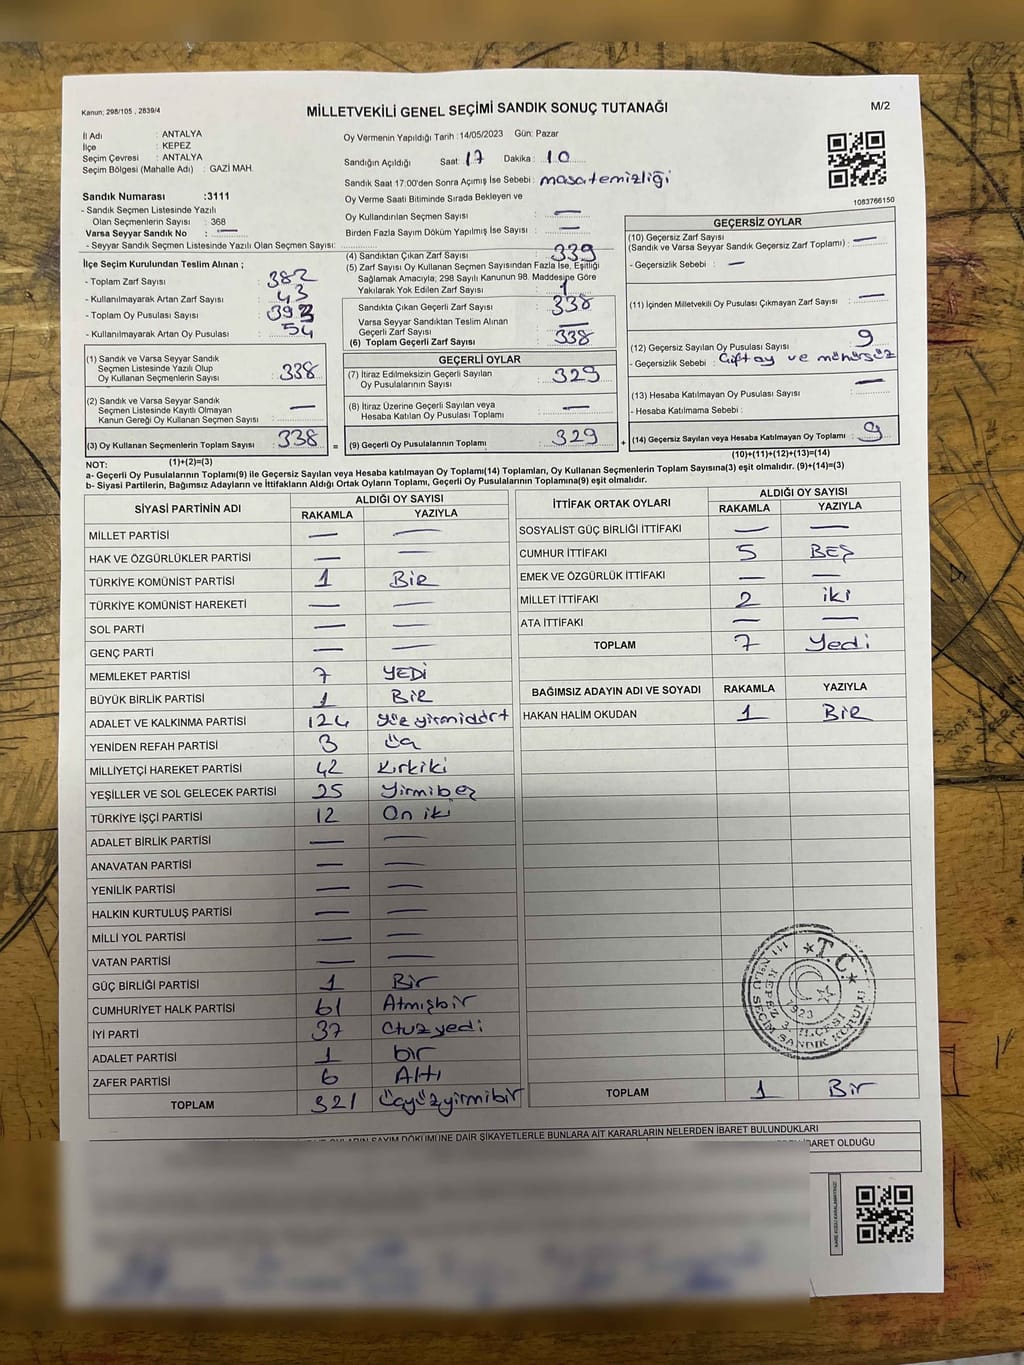 Kanun; 298/105 , 2839/4
MİLLETVEKİLİ GENEL SEÇİMİ SANDIK SONUÇ TUTANAĞI
M/2
İl Adı : ANTALYA
İlçe : KEPEZ
Seçim Çevresi : ANTALYA
Seçim Bölgesi (Mahalle Adı) : GAZİ MAH.
Sandık Numarası :3111
- Sandık Seçmen Listesinde Yazılı
Olan Seçmenlerin Sayısı : 368
Varsa Seyyar Sandık No : —
- Seyyar Sandık Seçmen Listesinde Yazılı Olan Seçmen Sayısı:
Oy Vermenin Yapıldığı Tarih :14/05/2023 Gün: Pazar
Sandığın Açıldığı Saat: 17 Dakika : 10
Sandık Saat 17:00'den Sonra Açımış İse Sebebi : masatemizliği
Oy Verme Saati Bitiminde Sırada Bekleyen ve
Oy Kullandırılan Seçmen Sayısı : —
Birden Fazla Sayım Döküm Yapılmış İse Sayısı : —
1083766150
İlçe Seçim Kurulundan Teslim Alınan ;
- Toplam Zarf Sayısı : 382
- Kullanılmayarak Artan Zarf Sayısı : 43
- Toplam Oy Pusulası Sayısı : 392
- Kullanılmayarak Artan Oy Pusulası : 54
(1) Sandık ve Varsa Seyyar Sandık
Seçmen Listesinde Yazılı Olup
Oy Kullanan Seçmenlerin Sayısı : 338
(2) Sandık ve Varsa Seyyar Sandık
Seçmen Listesinde Kayıtlı Olmayan
Kanun Gereği Oy Kullanan Seçmen Sayısı : —
(3) Oy Kullanan Seçmenlerin Toplam Sayısı : 338
(4) Sandıktan Çıkan Zarf Sayısı : 339
(5) Zarf Sayısı Oy Kullanan Seçmen Sayısından Fazla İse, Eşitliği
Sağlamak Amacıyla; 298 Sayılı Kanunun 98. Maddesine Göre
Yakılarak Yok Edilen Zarf Sayısı : 1
Sandıkta Çıkan Geçerli Zarf Sayısı : 338
Varsa Seyyar Sandıktan Teslim Alınan
Geçerli Zarf Sayısı : —
(6) Toplam Geçerli Zarf Sayısı : 338
GEÇERLİ OYLAR
(7) İtiraz Edilmeksizin Geçerli Sayılan
Oy Pusulalarının Sayısı : 329
(8) İtiraz Üzerine Geçerli Sayılan veya
Hesaba Katılan Oy Pusulası Toplamı : —
= (9) Geçerli Oy Pusulalarının Toplamı : 329
GEÇERSİZ OYLAR
(10) Geçersiz Zarf Sayısı
(Sandık ve Varsa Seyyar Sandık Geçersiz Zarf Toplamı) : —
- Geçersizlik Sebebi : —
(11) İçinden Milletvekili Oy Pusulası Çıkmayan Zarf Sayısı : —
(12) Geçersiz Sayılan Oy Pusulası Sayısı : 9
- Geçersizlik Sebebi : Çift oy ve mühürsüz
(13) Hesaba Katılmayan Oy Pusulası Sayısı : —
- Hesaba Katılmama Sebebi :
+ (14) Geçersiz Sayılan veya Hesaba Katılmayan Oy Toplamı : 9
NOT: (1)+(2)=(3)
(10)+(11)+(12)+(13)=(14)
a- Geçerli Oy Pusulalarının Toplamı(9) ile Geçersiz Sayılan veya Hesaba katılmayan Oy Toplamı(14) Toplamları, Oy Kullanan Seçmenlerin Toplam Sayısına(3) eşit olmalıdır. (9)+(14)=(3)
b- Siyasi Partilerin, Bağımsız Adayların ve İttifakların Aldığı Ortak Oyların Toplamı, Geçerli Oy Pusulalarının Toplamına(9) eşit olmalıdır.
SİYASİ PARTİNİN ADI ALDIĞI OY SAYISI
RAKAMLA YAZIYLA
MİLLET PARTİSİ — —
HAK VE ÖZGÜRLÜKLER PARTİSİ — —
TÜRKİYE KOMÜNİST PARTİSİ 1 Bir
TÜRKİYE KOMÜNİST HAREKETİ — —
SOL PARTİ — —
GENÇ PARTİ — —
MEMLEKET PARTİSİ 7 YEDİ
BÜYÜK BİRLİK PARTİSİ 1 Bir
ADALET VE KALKINMA PARTİSİ 124 yüz yirmidört
YENİDEN REFAH PARTİSİ 3 üç
MİLLİYETÇİ HAREKET PARTİSİ 42 Kırkiki
YEŞİLLER VE SOL GELECEK PARTİSİ 25 Yirmibeş
TÜRKİYE İŞÇİ PARTİSİ 12 On iki
ADALET BİRLİK PARTİSİ — —
ANAVATAN PARTİSİ — —
YENİLİK PARTİSİ — —
HALKIN KURTULUŞ PARTİSİ — —
MİLLİ YOL PARTİSİ — —
VATAN PARTİSİ — —
GÜÇ BİRLİĞİ PARTİSİ 1 Bir
CUMHURİYET HALK PARTİSİ 61 Atmışbir
İYİ PARTİ 37 Otuz yedi
ADALET PARTİSİ 1 bir
ZAFER PARTİSİ 6 Altı
TOPLAM 321 üçyüzyirmibir
İTTİFAK ORTAK OYLARI ALDIĞI OY SAYISI
RAKAMLA YAZIYLA
SOSYALİST GÜÇ BİRLİĞİ İTTİFAKI — —
CUMHUR İTTİFAKI 5 BEŞ
EMEK VE ÖZGÜRLÜK İTTİFAKI — —
MİLLET İTTİFAKI 2 iki
ATA İTTİFAKI — —
TOPLAM 7 Yedi
BAĞIMSIZ ADAYIN ADI VE SOYADI RAKAMLA YAZIYLA
HAKAN HALİM OKUDAN 1 Bir
T.C.
1923
KEPEZ 3. İLÇESİ
111 NOLU SEÇİM SANDIK KURULU
TOPLAM 1 Bir
OYLARIN SAYIM DÖKÜMÜNE DAİR ŞİKAYETLERLE BUNLARA AİT KARARLARIN NELERDEN İBARET BULUNDUKLARI
İBARET OLDUĞU